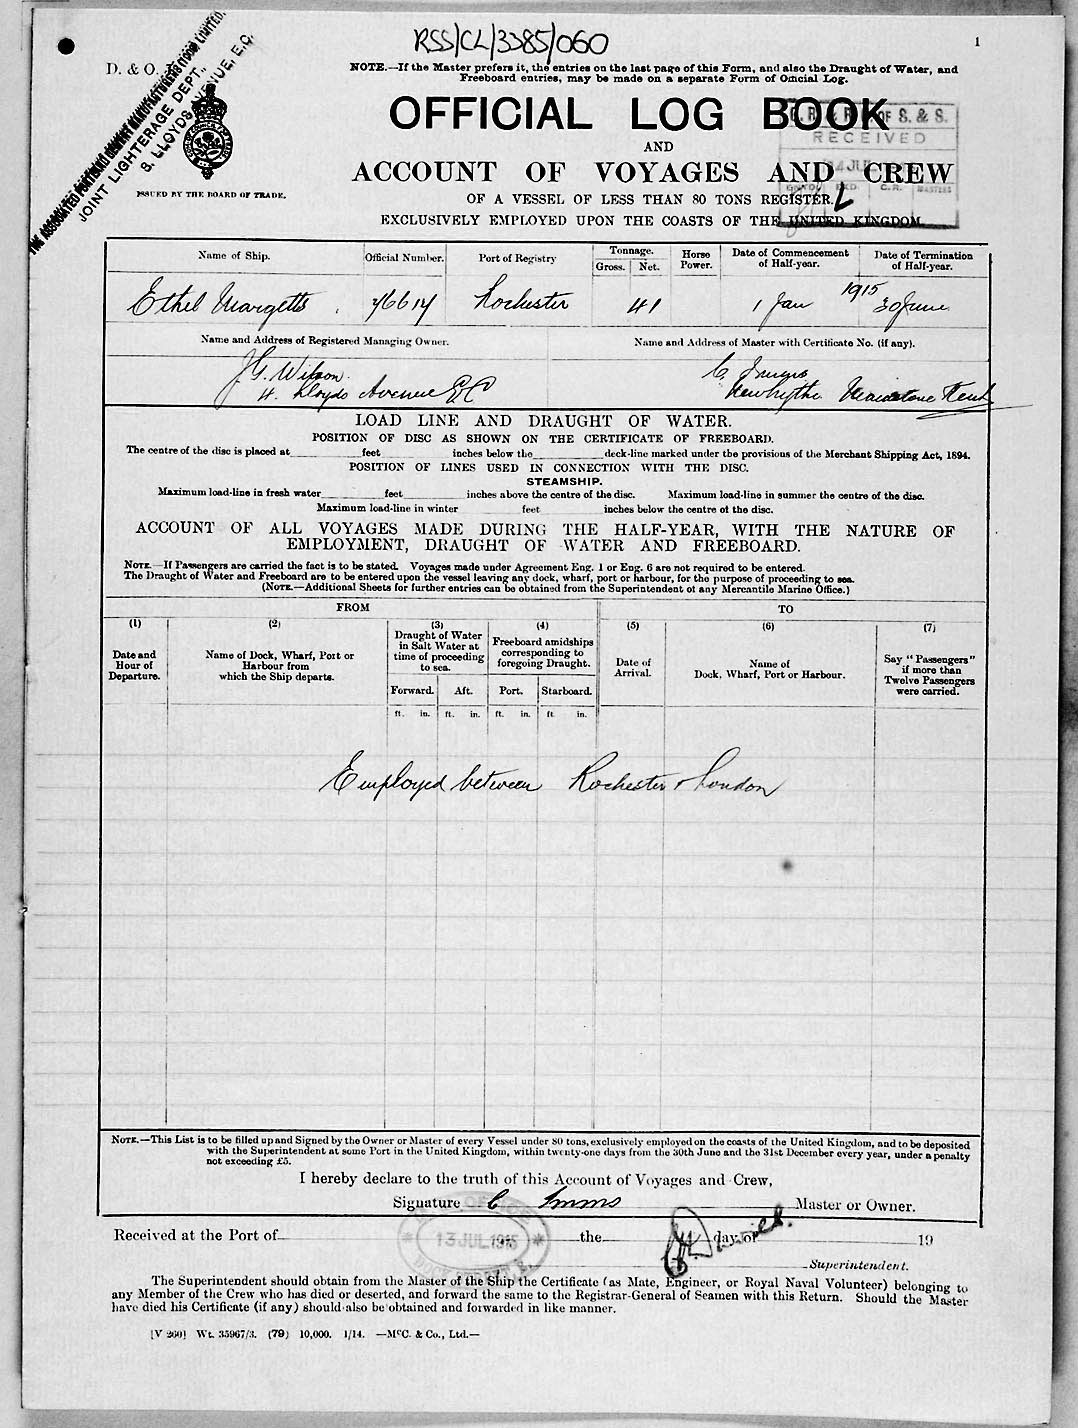 RSS/CL/3385/060
1
D. & O.
THE ASSOCIATED PORTLAND CEMENT MANUFACTURERS (1900) LIMITED.
JOINT LIGHTERAGE DEPT.,
8. LLOYDS AVENUE, E.C.
NOTE.—If the Master prefers it, the entries on the last page of this Form, and also the Draught of Water, and
Freeboard entries, may be made on a separate Form of Official Log.
OFFICIAL LOG BOOK
AND
ACCOUNT OF VOYAGES AND CREW
OF A VESSEL OF LESS THAN 80 TONS REGISTER,
EXCLUSIVELY EMPLOYED UPON THE COASTS OF THE UNITED KINGDOM.
ISSUED BY THE BOARD OF TRADE.
OF S. & S.
RECEIVED
JUL
C.R. MASTERS
Name of Ship. Official Number. Port of Registry Tonnage. Gross. Net. Horse Power. Date of Commencement of Half-year. Date of Termination of Half-year.
Ethel Margetts 76614 Rochester 41 1 Jan 1915 30 June
Name and Address of Registered Managing Owner. Name and Address of Master with Certificate No. (if any).
J. G. Wilson C Imms
4. Lloyds Avenue EC Newhythe Maidstone Kent
LOAD LINE AND DRAUGHT OF WATER.
POSITION OF DISC AS SHOWN ON THE CERTIFICATE OF FREEBOARD.
The centre of the disc is placed at feet inches below the deck-line marked under the provisions of the Merchant Shipping Act, 1894.
POSITION OF LINES USED IN CONNECTION WITH THE DISC.
STEAMSHIP.
Maximum load-line in fresh water feet inches above the centre of the disc. Maximum load-line in summer the centre of the disc.
Maximum load-line in winter feet inches below the centre of the disc.
ACCOUNT OF ALL VOYAGES MADE DURING THE HALF-YEAR, WITH THE NATURE OF
EMPLOYMENT, DRAUGHT OF WATER AND FREEBOARD.
NOTE.—If Passengers are carried the fact is to be stated. Voyages made under Agreement Eng. 1 or Eng. 6 are not required to be entered.
The Draught of Water and Freeboard are to be entered upon the vessel leaving any dock, wharf, port or harbour, for the purpose of proceeding to sea.
(NOTE.—Additional Sheets for further entries can be obtained from the Superintendent of any Mercantile Marine Office.)
FROM TO
(1) (2) (3) (4) (5) (6) (7)
Date and
Hour of
Departure.
Name of Dock, Wharf, Port or
Harbour from
which the Ship departs.
Draught of Water
in Salt Water at
time of proceeding
to sea.
Freeboard amidships
corresponding to
foregoing Draught.
Date of
Arrival.
Name of
Dock, Wharf, Port or Harbour.
Say "Passengers"
if more than
Twelve Passengers
were carried.
Forward. Aft. Port. Starboard.
ft. in. ft. in. ft. in. ft. in.
Employed between Rochester & London
NOTE.—This List is to be filled up and Signed by the Owner or Master of every Vessel under 80 tons, exclusively employed on the coasts of the United Kingdom, and to be deposited
with the Superintendent at some Port in the United Kingdom, within twenty-one days from the 30th June and the 31st December every year, under a penalty
not exceeding £5.
I hereby declare to the truth of this Account of Voyages and Crew,
Signature C Imms Master or Owner.
Received at the Port of the day of 19
13 JUL 1915
Superintendent.
The Superintendent should obtain from the Master of the Ship the Certificate (as Mate, Engineer, or Royal Naval Volunteer) belonging to
any Member of the Crew who has died or deserted, and forward the same to the Registrar-General of Seamen with this Return. Should the Master
have died his Certificate (if any) should also be obtained and forwarded in like manner.
[V 260] Wt. 35967/3. (79) 10,000. 1/14. —McC. & Co., Ltd.—